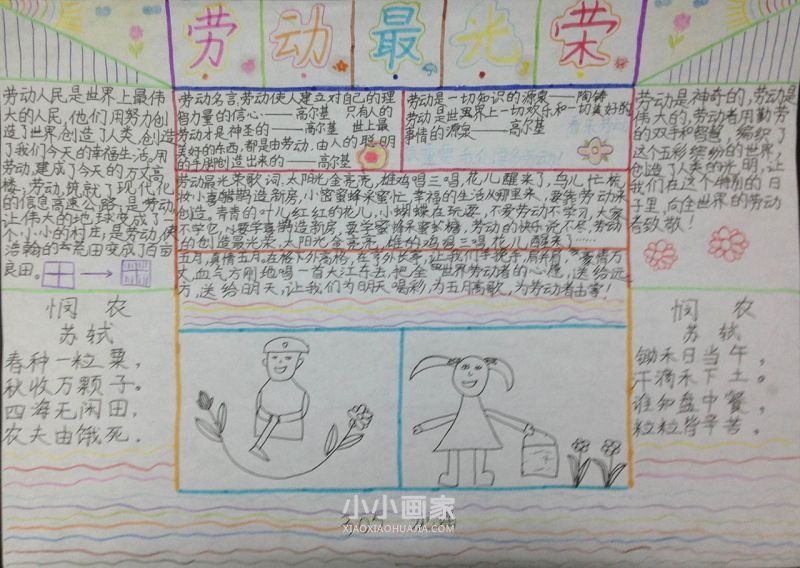 劳动最光荣
劳动人民是世界上最伟
大的人民,他们用努力创
造了世界,创造了人类,创造
了我们今天的幸福生活,用
劳动,建成了今天的万丈高
楼;劳动,筑就了现代化
的信息高速公路;是劳动
让伟大的地球变成了一
个小小的村庄;是劳动,使
浩翰的荒田变成了百亩
良田。
劳动名言,劳动使人建立对自己的理
智力量的信心——高尔基 只有人的
劳动才是神圣的——高尔基 世上最
美好的东西,都是由劳动,由人的聪明
的手所创造出来的——高尔基
劳动是一切知识的源泉——陶铸
劳动是世界上一切欢乐和一切美好的
事情的源泉——高尔基
劳动最光荣歌词,太阳光金亮亮,雄鸡唱三唱,花儿醒来了,鸟儿忙梳
妆小喜鹊造新房,小蜜蜂采蜜忙,幸福的生活从哪里来,要靠劳动来
创造。青青的叶儿红红的花儿,小蝴蝶在玩耍,不爱劳动不学习,大家
不学它,要学喜鹊造新房,要学蜜蜂采蜜糖,劳动的快乐说不尽,劳动
的创造最光荣,太阳光金亮亮,雄鸡唱三唱花儿醒来了……
五月,真情五月。在格外高格,在
丈,血气方刚地唱一首大江东去,把全世界劳动者的心愿,送给远
方,送给明天,让我们为明天喝彩,为五月高歌,为劳动者击掌!
劳动是神奇的,劳动是
伟大的,劳动者用勤劳
的双手和智慧,编织了
这个五彩缤纷的世界,
创造了人类的光明,让
我们在这个特别的日
子里,向全世界的劳动
者致敬!
悯 农
苏轼
春种一粒粟,
秋收万颗子。
四海无闲田,
农夫由饿死。
悯 农
苏轼
锄禾日当午,
汗滴禾下土。
谁知盘中餐,
粒粒皆辛苦。
小小画家
XIAOXIAOHUAJIA.COM